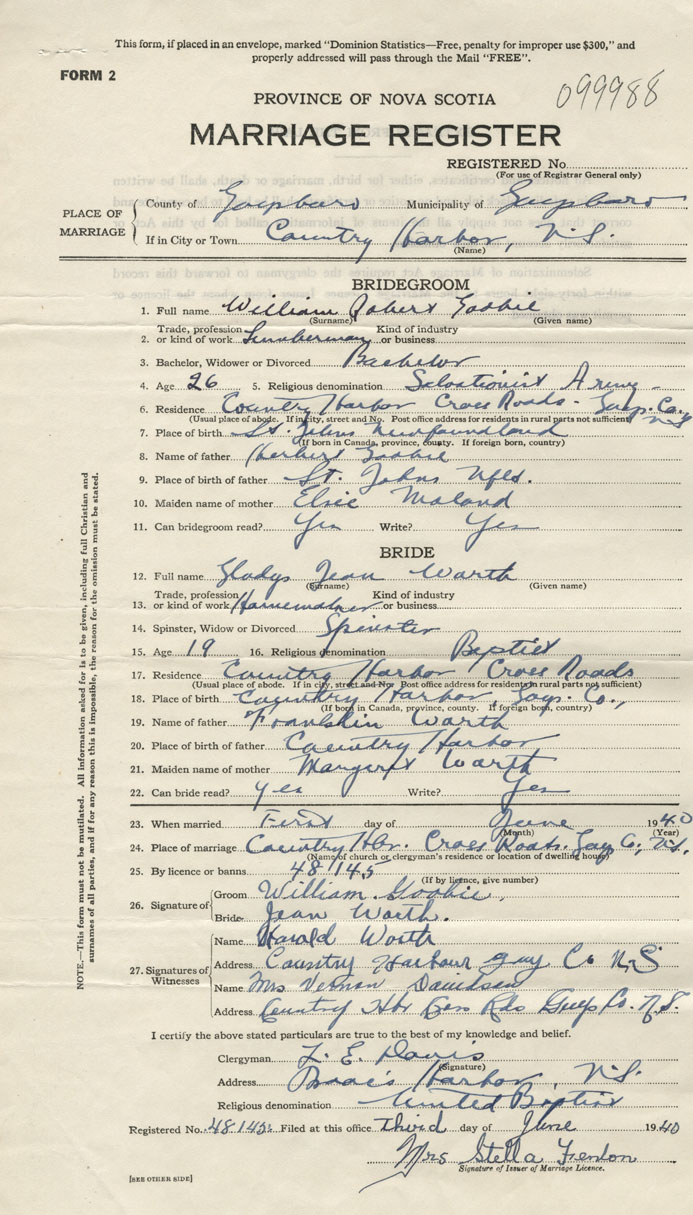 This form, if placed in an envelope, marked "Dominion Statistics—Free, penalty for improper use $300," and
properly addressed will pass through the Mail "FREE".
FORM 2
099988
PROVINCE OF NOVA SCOTIA
MARRIAGE REGISTER
REGISTERED No.
(For use of Registrar General only)
PLACE OF MARRIAGE
County of Guysboro Municipality of Guysboro
If in City or Town Country Harbor, N.S.
(Name)
BRIDEGROOM
1. Full name William Robert Goobie
(Surname) (Given name)
Trade, profession Kind of industry
2. or kind of work Lumberman or business
3. Bachelor, Widower or Divorced Bachelor
4. Age 26 5. Religious denomination Salvationist Army
6. Residence Country Harbor Cross Roads - Guys. Co., N.S.
(Usual place of abode. If in city, street and No. Post office address for residents in rural parts not sufficient)
7. Place of birth St. Johns Newfoundland
(If born in Canada, province, county. If foreign born, country)
8. Name of father Herbert Goobie
9. Place of birth of father St. Johns Nfld.
10. Maiden name of mother Elsie Moland
11. Can bridegroom read? Yes Write? Yes
BRIDE
12. Full name Gladys Jean Worth
(Surname) (Given name)
Trade, profession Kind of industry
13. or kind of work Homemaker or business
14. Spinster, Widow or Divorced Spinster
15. Age 19 16. Religious denomination Baptist
17. Residence Country Harbor Cross Roads
(Usual place of abode. If in city, street and No. Post office address for residents in rural parts not sufficient)
18. Place of birth Country Harbor Guys. Co.,
(If born in Canada, province, county. If foreign born, country)
19. Name of father Franklin Worth
20. Place of birth of father Country Harbor
21. Maiden name of mother Margaret Worth
22. Can bride read? Yes Write? Yes
23. When married First day of June 1940
(Month) (Year)
24. Place of marriage Country Hbr. Cross Roads. Guy Co., N.S.
(Name of church or clergyman's residence or location of dwelling house)
25. By licence or banns 48145
(If by licence, give number)
26. Signature of
Groom William Goobie.
Bride Jean Worth.
27. Signatures of Witnesses
Name Harald Worth
Address Country Harbour Guy Co N.S
Name Mrs Vernon Davidson
Address Country Hbr Cross Rds Guys Co. N.S.
I certify the above stated particulars are true to the best of my knowledge and belief.
Clergyman L. E. Davis
(Signature)
Address Isaac's Harbor, N.S.
Religious denomination United Baptist
Registered No. 48145 Filed at this office third day of June 1940
Mrs Stella Fenton
Signature of Issuer of Marriage Licence.
[SEE OTHER SIDE]
NOTE.—This form must not be mutilated. All information asked for is to be given, including full Christian and
surnames of all parties, and if for any reason this is impossible, the reason for the omission must be stated.